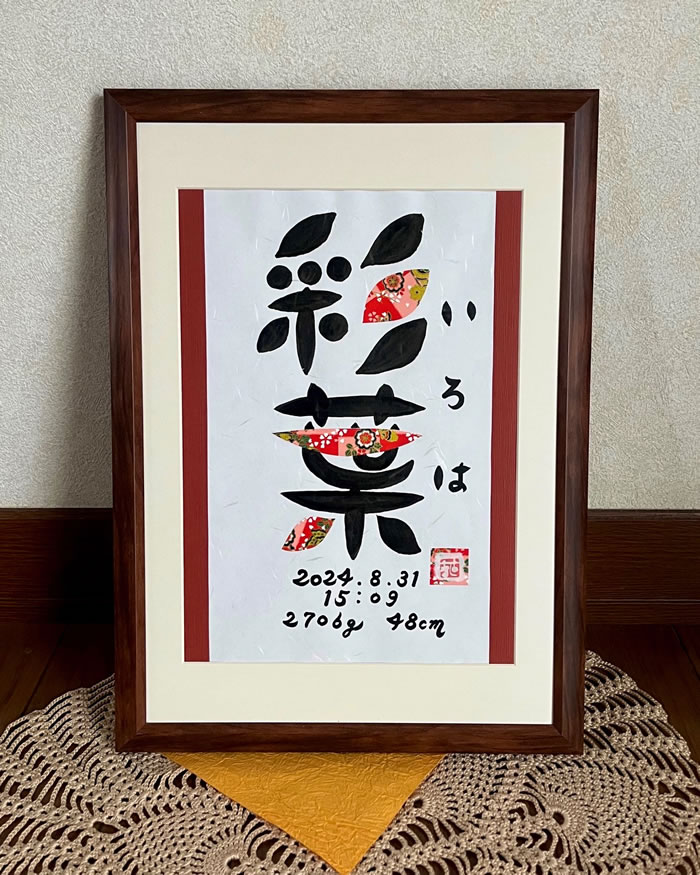 彩葉
いろは
2024.8.31
15:09
2706g 48cm